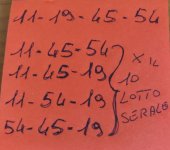 11-19-45-54
11-45-54
11-45-19
11-54-19
54-45-19
X IL
10
LOTTO
SERALE